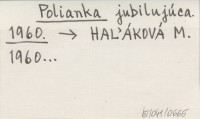 Polianka jubilujúca.
1960. → HAĽÁKOVÁ M.
1960...